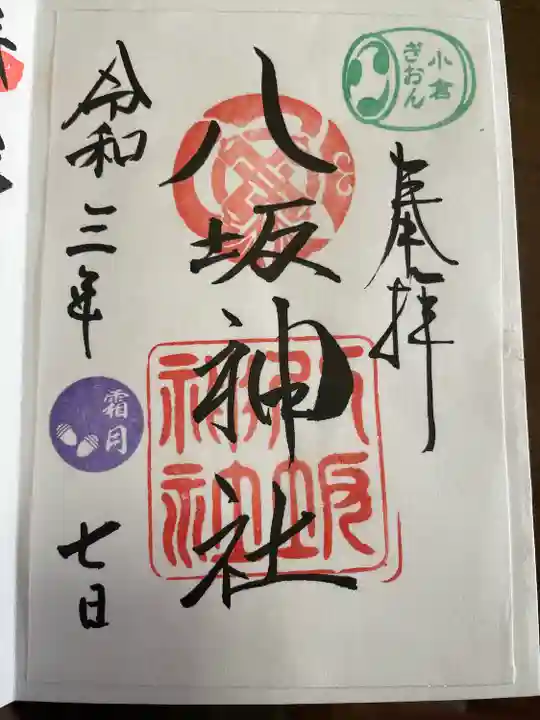 小倉
ぎおん
奉拝
八坂神社
令和三年
霜月
七日